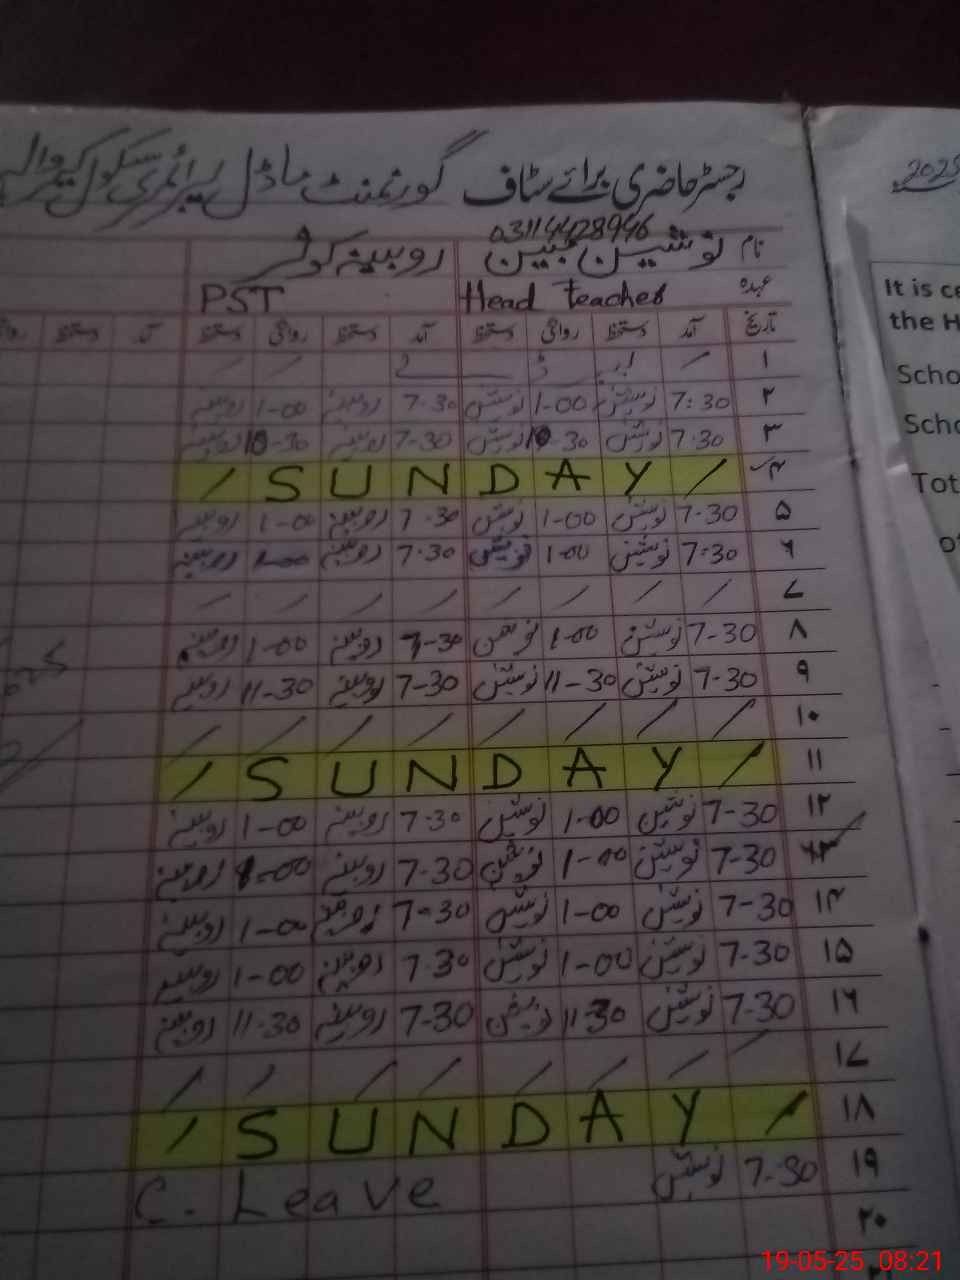 رجسٹر حاضری برائے سٹاف گورنمنٹ ماڈل پرائمری سکول
2025
03114428946
نام نوشین جبین روبینہ کوثر
عہدہ Head teacher PST
تاریخ آمد دستخط روانگی دستخط آمد دستخط روانگی دستخط آمد دستخط
۱ /
۲ 7:30 نوشین 1-00 نوشین 7.30 روبینہ 1-00 روبینہ
۳ 7.30 نوشین 10.30 نوشین 7-30 روبینہ 10-30 روبینہ
۴ / S U N D A Y /
۵ 7-30 نوشین 1-00 نوشین 7.30 روبینہ 1-00 روبینہ
۶ 7:30 نوشین 1-00 نوشین 7.30 روبینہ 1-00 روبینہ
۷ / / / / / / / /
۸ 7-30 نوشین 1-00 نوشین 7-30 روبینہ 1-00 روبینہ
۹ 7-30 نوشین 11-30 نوشین 7-30 روبینہ 11-30 روبینہ
۱۰ / / / / / / / /
۱۱ / S U N D A Y /
۱۲ 7-30 نوشین 1-00 نوشین 7.30 روبینہ 1-00 روبینہ
۱۳ 7-30 نوشین 1-00 نوشین 7-30 روبینہ 1-00 روبینہ
۱۴ 7-30 نوشین 1-00 نوشین 7-30 روبینہ 1-00 روبینہ
۱۵ 7-30 نوشین 1-00 نوشین 7.30 روبینہ 1-00 روبینہ
۱۶ 7-30 نوشین 11-30 نوشین 7-30 روبینہ 11-30 روبینہ
۱۷ / / / / / / / /
۱۸ / S U N D A Y /
۱۹ 7-30 نوشین C. Leave
۲۰
It is ce
the H
Scho
Scho
Tot
19-05-25 08:21